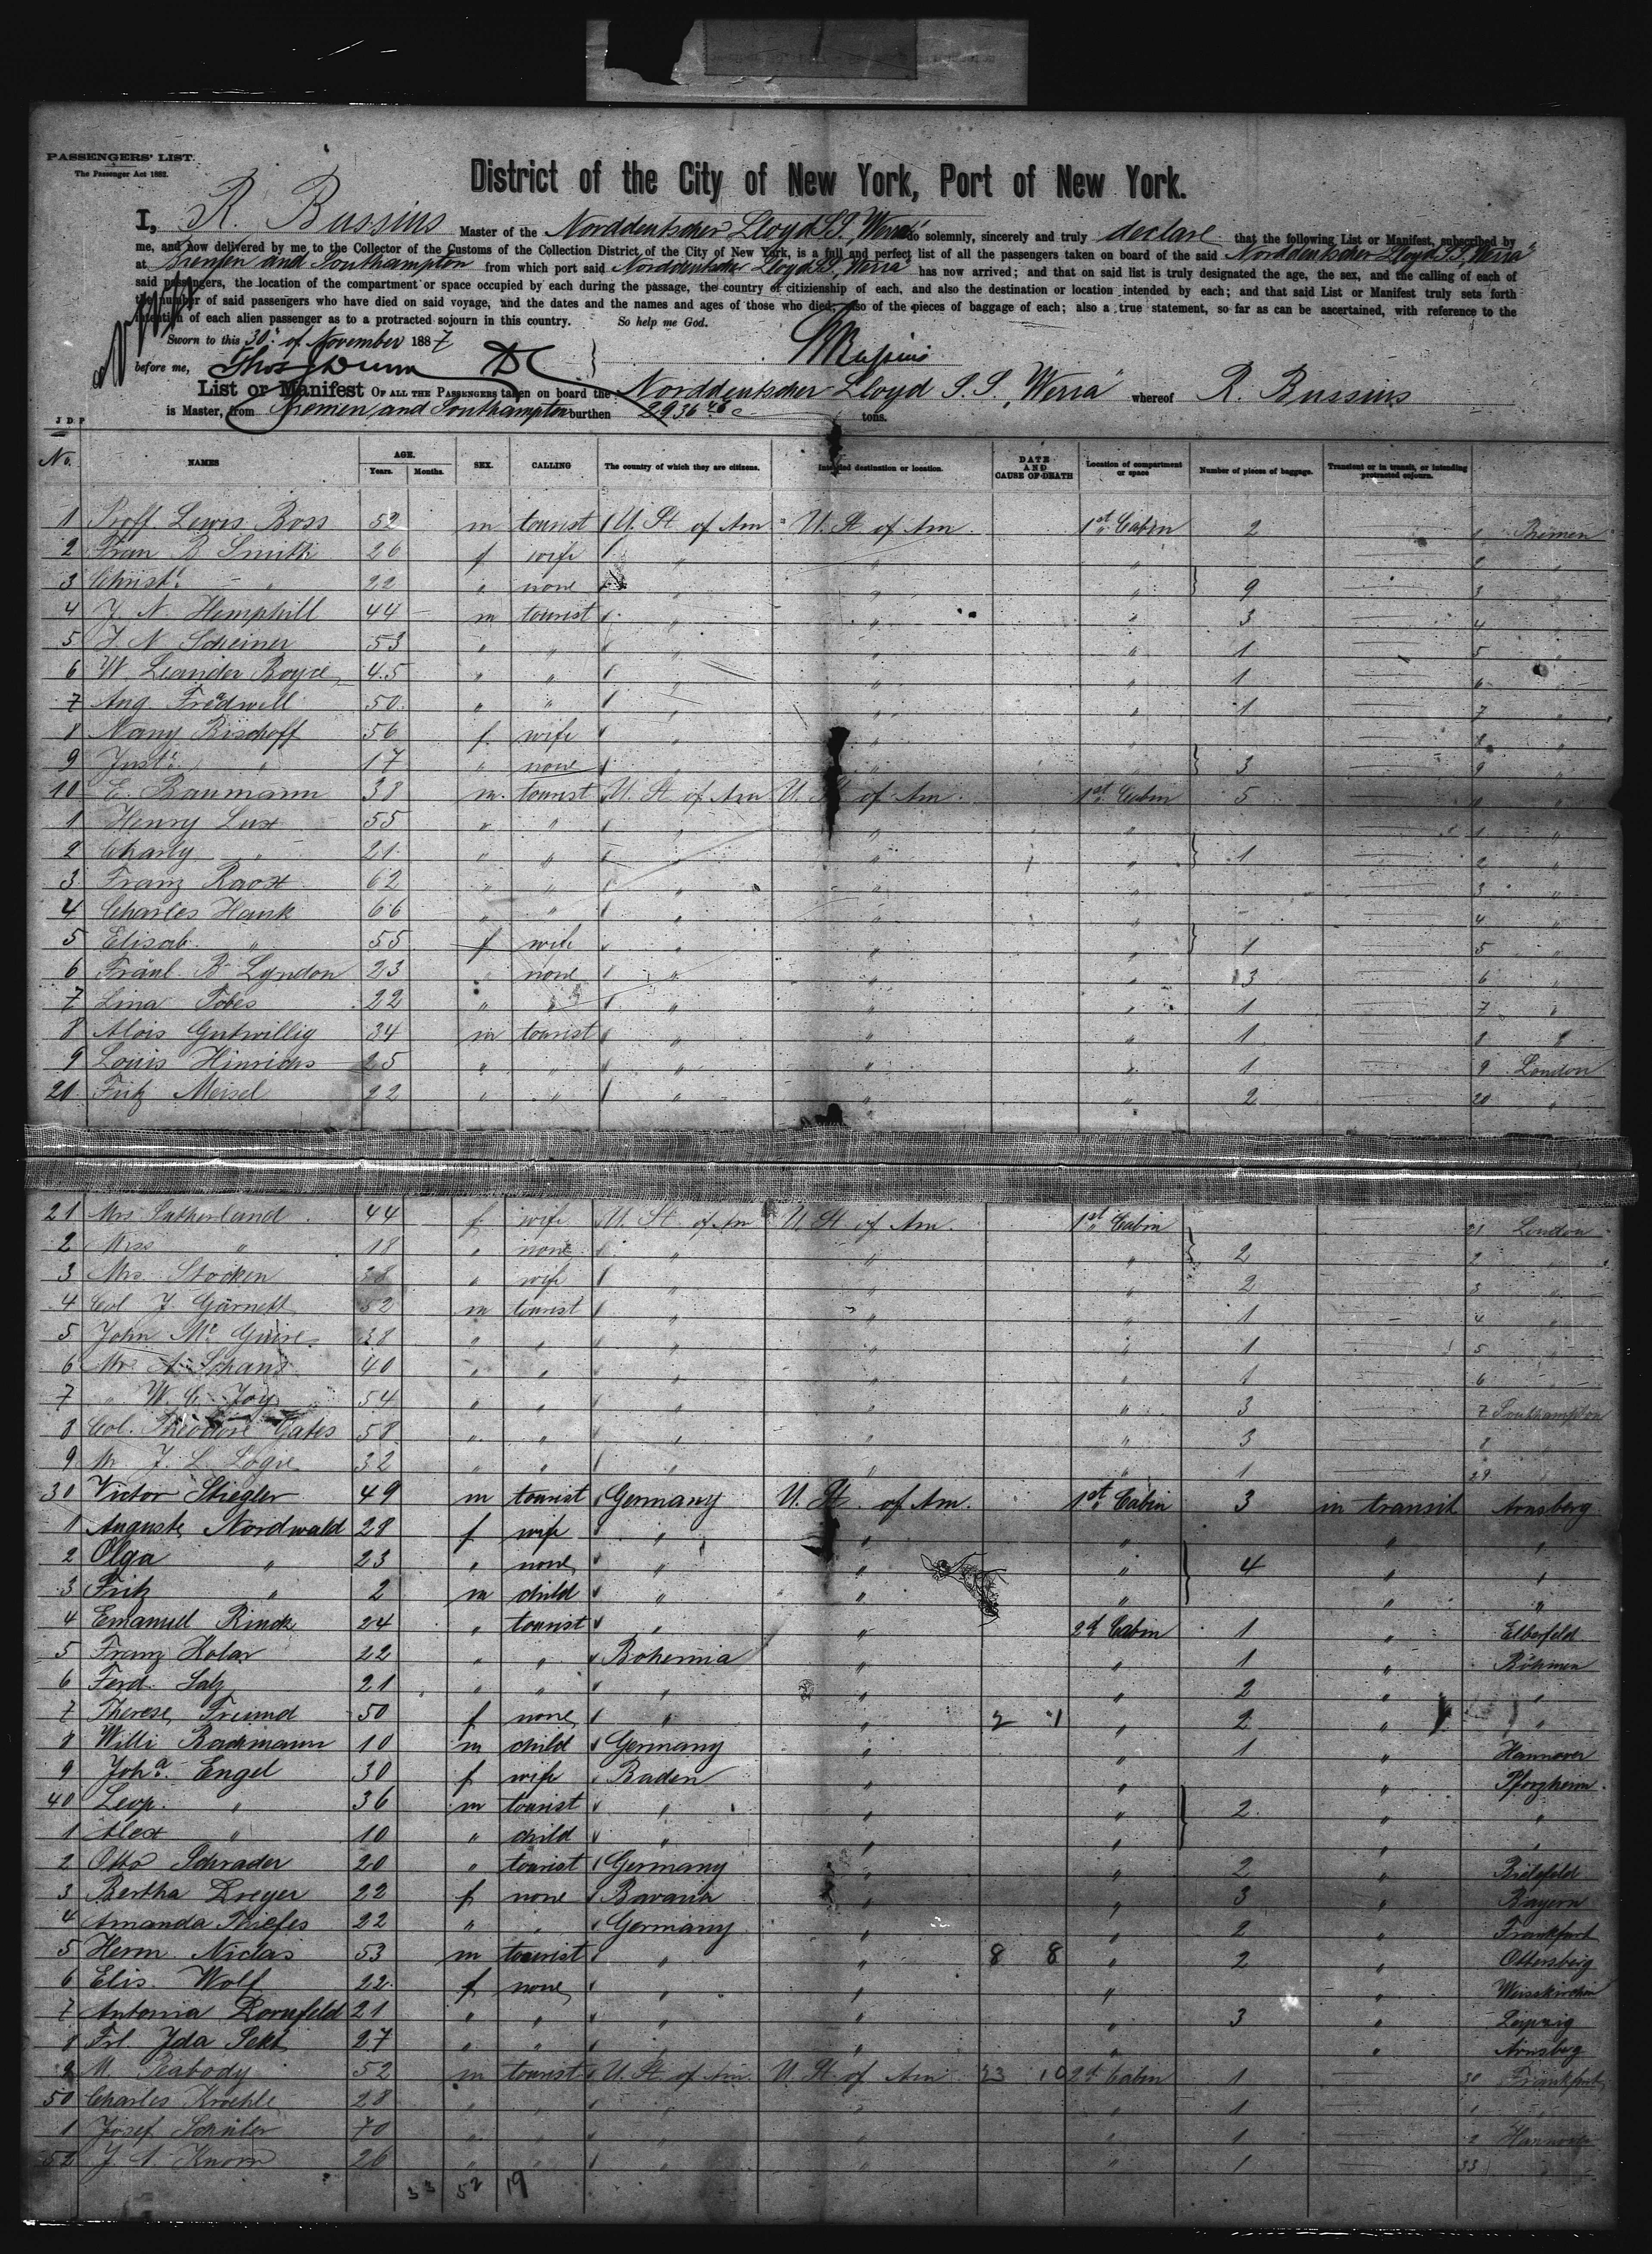 PASSENGERS' LIST.
The Passenger Act 1882.
District of the City of New York, Port of New York.
I, R. Bussius Master of the Norddeutscher Lloyd S.S. "Werra" do solemnly, sincerely and truly declare that the following List or Manifest, subscribed by
me, and now delivered by me to the Collector of the Customs of the Collection District of the City of New York, is a full and perfect list of all the passengers taken on board of the said Norddeutscher Lloyd S.S. "Werra"
at Bremen and Southampton from which port said Norddeutscher Lloyd S.S. "Werra" has now arrived; and that on said list is truly designated the age, the sex, and the calling of each of
said passengers, the location of the compartment or space occupied by each during the passage, the country of citizienship of each, and also the destination or location intended by each; and that said List or Manifest truly sets forth
the number of said passengers who have died on said voyage, and the dates and the names and ages of those who died; also of the pieces of baggage of each; also a true statement, so far as can be ascertained, with reference to the
intention of each alien passenger as to a protracted sojourn in this country. So help me God.
Sworn to this 30: of November 1887
R Bussius
before me, Thos Dunn DC
List or Manifest OF ALL THE PASSENGERS taken on board the Norddeutscher Lloyd S.S. "Werra" whereof R. Bussius
is Master, from Bremen and Southampton burthen 2936 tons.
J D P
No. NAMES AGE. Years. Months. SEX. CALLING The country of which they are citizens. Intended destination or location. DATE AND CAUSE OF DEATH Location of compartment or space Number of pieces of baggage. Transient or in transit, or intending protracted sojourn.
1 Proff. Lewis Ross 52 m tourist U. St. of Am. U. St. of Am. 1st Cabin 2 1 Bremen
2 Frau B. Smith 26 f wife " " " 2 "
3 Christ. " 22 " none " " " 9 3 "
4 J. N. Hemphill 44 m tourist " " " 3 4 "
5 J. N. Scheiner 53 " " " " " 1 5 "
6 W. Leander Boyce 45 " " " " " 1 6 "
7 Aug. Fradwell 50 " " " " " 1 7 "
8 Nany Bischoff 56 f wife " " " 8 "
9 Just. " 17 " none " " " 3 9 "
10 E. Baumann 38 m. tourist U. St. of Am U. St. of Am. 1st Cabin 5 "
1 Henry Lux 55 " " " " " 1 "
2 Charly " 21 " " " " " 1 2 "
3 Franz 62 " " " " " 3 "
4 Charles Hank 66 " " " " " 4 "
5 Elisab. " 55 f wife " " " 1 5 "
6 Fräul. B. Lyndon 23 none " " " 3 6 "
7 Lina Tobes 22 " " " " " 1 7 "
8 Alois Gutwillig 34 m tourist " " " 1 8 "
9 Louis Hinrichs 25 " " " " " 1 9 London
20 Fritz Meisel 22 " " " " " 2 20 "
21 Mrs Sutherland 44 f wife U. St. of Am U. St of Am. 1st Cabin 21 London
2 Miss " 18 " none " " " 2 2 "
3 Mrs. Stocken 38 " wife " " " 2 3 "
4 Col. J. Garnett 52 m tourist " " " 1 4 "
5 John Mc Guire 38 " " " " " 1 5 "
6 Mr. A. Schanz 40 " " " " " 1 6 "
7 " W. C. Joy 54 " " " " " 3 7 Southampton
8 Col. Theodore Gates 58 " " " " " 3 8 "
9 Mr. J. L. Logue 32 " " " " " 1 29 "
30 Victor Stiegler 49 m tourist Germany U. St. of Am. 1st Cabin 3 in transit Arnsberg
1 Auguste Nordwald 28 f wife " " " " "
2 Olga " 23 " none " " " 4 " "
3 Fritz " 2 m child " " " " "
4 Emanuel Rinck 24 " tourist " " 2d Cabin 1 " Elberfeld
5 Franz Holar 22 " " Bohemia " " 1 " Böhmen
6 Ferd. Salz 21 " " " " " 2 " "
7 Therese Freund 50 f none " " 2 1 " 2 " "
8 Willi Bachmann 10 m child Germany " " 1 " Hannover
9 Joha. Engel 30 f wife Baden " " " Pforzheim
40 Leop. " 36 m tourist " " " 2 " "
1 Alex " 10 " child " " " "
2 Otto Schrader 20 " tourist Germany " " 2 " Bielefeld
3 Bertha Dreyer 22 f none Bavaria " " 3 " Bayern
4 Amanda Thiefes 22 " " Germany " " 2 " Frankfurt
5 Herm. Niclas 53 m tourist " " 8 8 " 2 " Ottersberg
6 Elis. Wolf 22 f none " " " " Weisskirchen
7 Antonia Dornfeld 21 " " " " " 3 " Leipzig
8 Frl. Ida Sekt 27 " " " " " " Arnsberg
9 M. Peabody 52 m tourist U. St. of Am. U. St. of Am 23 10 2d Cabin 1 30 Frankfurt
50 Charles Kroehle 28 " " " " " 1 1 "
1 Josef Schuler 70 " " " " " 1 2 Hannover
52 J. A. Knorn 26 " " " " " 1 33 "
33 52 19